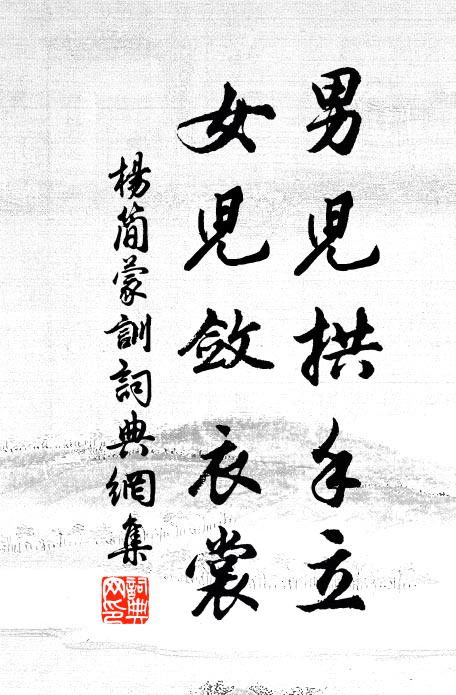 男兒拱手立
女兒斂衣裳
楊簡蒙訓詞典網集
詞典網印